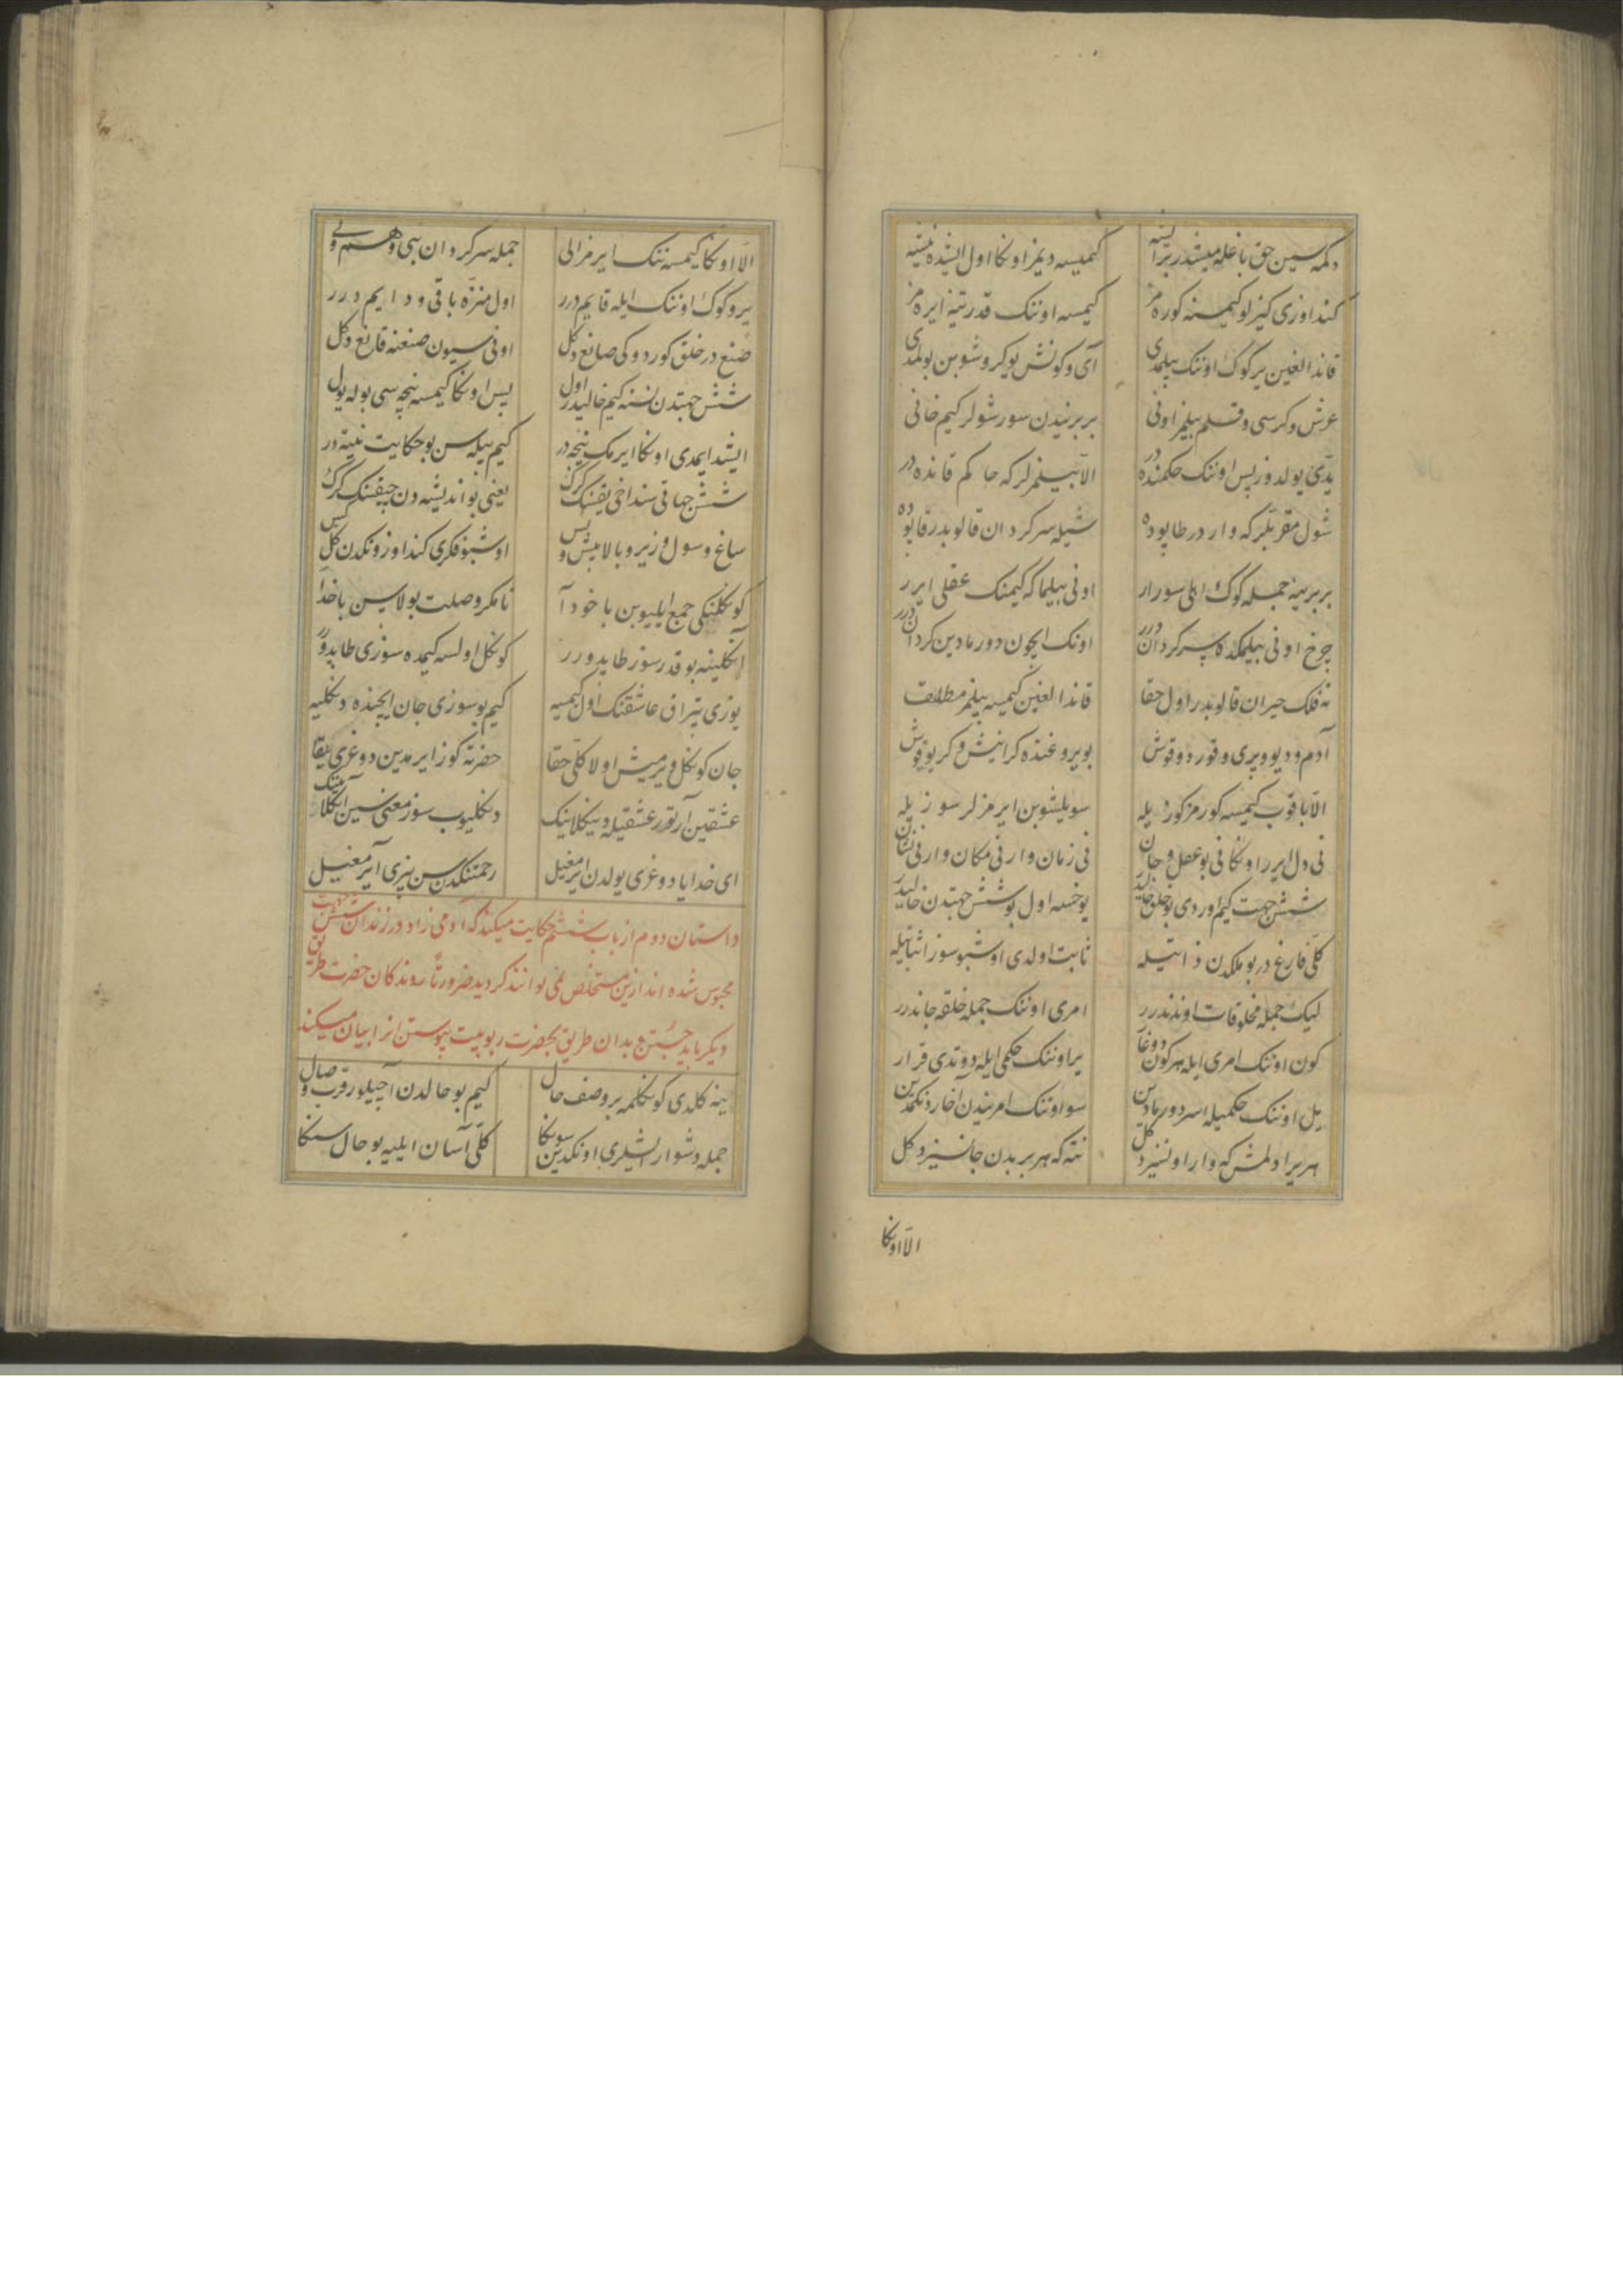 دکمه سین حق باغلمیشدر بر ایشه کیمسه دیمز اونکا اول ایشده نیته
کنداوزی کیزلو کیمسنه کوره مز کیمسه اوننک قدرتینه ایره مز
قاندالغین یر کوک اوننک بیلمدی آی و کونش یوکروشوبن بولمدی
عرش و کرسی و قلم بیلمز اونی بربریندن سورشولر کیم خانی
یدی یولدوز پس اوننک حکمنده در الا بیلمزلر که حاکم قانده در
شول مقربلر که واردر طاپوده شیله سرکردان قالوبدر قاپوده
بربرینه جمله کوک اهلی سورار اونی بیلماکه کیمنک عقلی ایرر
چرخ اونی بیلمکده سرکرداندرر اونک ایچون دورمادین کرداندرر
نه فلک حیران قالوبدر اول حقا قاندالغین کیمسه بیلمز مطلقا
آدم و دیو و پری و قورد و قوش بویروغنده کر اینیش و کر یوقوش
الا باقوب کیمسه کورمز کوزیله سویلشوبن ایرمزلر سوزیله
نی دل ایرر اونکا نی بو عقل و جان نی زمان وار نی مکان وار نی نشان
شش جهت کیم وردی بو خلق خالیدر یوخسه اول بو شش جهتدن خالیدر
کلی فارغدر بو ملکدن ذاتیله ثابت اولدی اوشبو سوز اثباتیله
لیک جمله مخلوقات اوندندرر امری اوننک جمله خلقه جاندرر
کون اوننک امری ایله هر کون دوغار یر اوننک حکمی ایله دوتدی قرار
یل اوننک حکمیله اسر دورمادین سو اوننک امریندن آخار دنکمدین
هر یرادلمش که وار اونسیز دکل نته که هر بر بدن جانسیز دکل
الا اونکا
الا اونکا کیمسه ننک ایرمز الی جمله سرکردان نبی و هم ولی
یر و کوک اوننک ایله قایم درر اول منزه باقی و دایم درر
صنع در خلق کوردوکی صانع دکل اونی سیون صنعنه قانع دکل
شش جهتدن نسنه کیم خالیدر اول پس اونکا کیمسه نیچه سی بوله یول
ایشد ایمدی اونکا ایرمک نیچه در کیم بیله سن بو حکایت نیته در
شش جهاتی سنداخی یقسنک کرک یعنی بو اندیشه دن چیقسنک کرک
ساغ و سول و زیر و بالا پیش و پس اوشبو فکری کنداوزونکدن کل کس
کونکلنکی جمع ایلیوبن با خود آ تا مکر وصلت بولاسن با خدا
آنکلینه بو قدر سوز طاپدورر کونکل اولسه کیمده سوزی طاپدورر
یوزی تپراق عاشقنک اول کیمیه کیم بو سوزی جان ایچنده دنکلیه
جان کونکل ویرمیش اولا کلی حقا حضرته کوز ایرمدین دوغری بقا
عشقین آرتورر عشقیله دینکلاینک دنکلیوب سوز معنی سین آنکلاینک
ای خدایا دوغری یولدن ایرمغیل رحمتنکدن سن بیزی آیرمغیل
داستان دوم از باب ششم حکایت میکند که آدمی زاد در زندان شش جهت
محبوس شده اند ازین مستخلص نمی توانند کردید ضرورتا روندکان حضرت طریق
دیکر باید جستن و بدان طریق بحضرت ربوبیت پیوستن انرا بیان میکند
ینه کلدی کونکلمه بر وصف حال کیم بو حالدن آچیلور قرب و وصال
جمله دشوار ایشلری اونکدین سونکا کلی آسان ایلیه بو حال سنکا